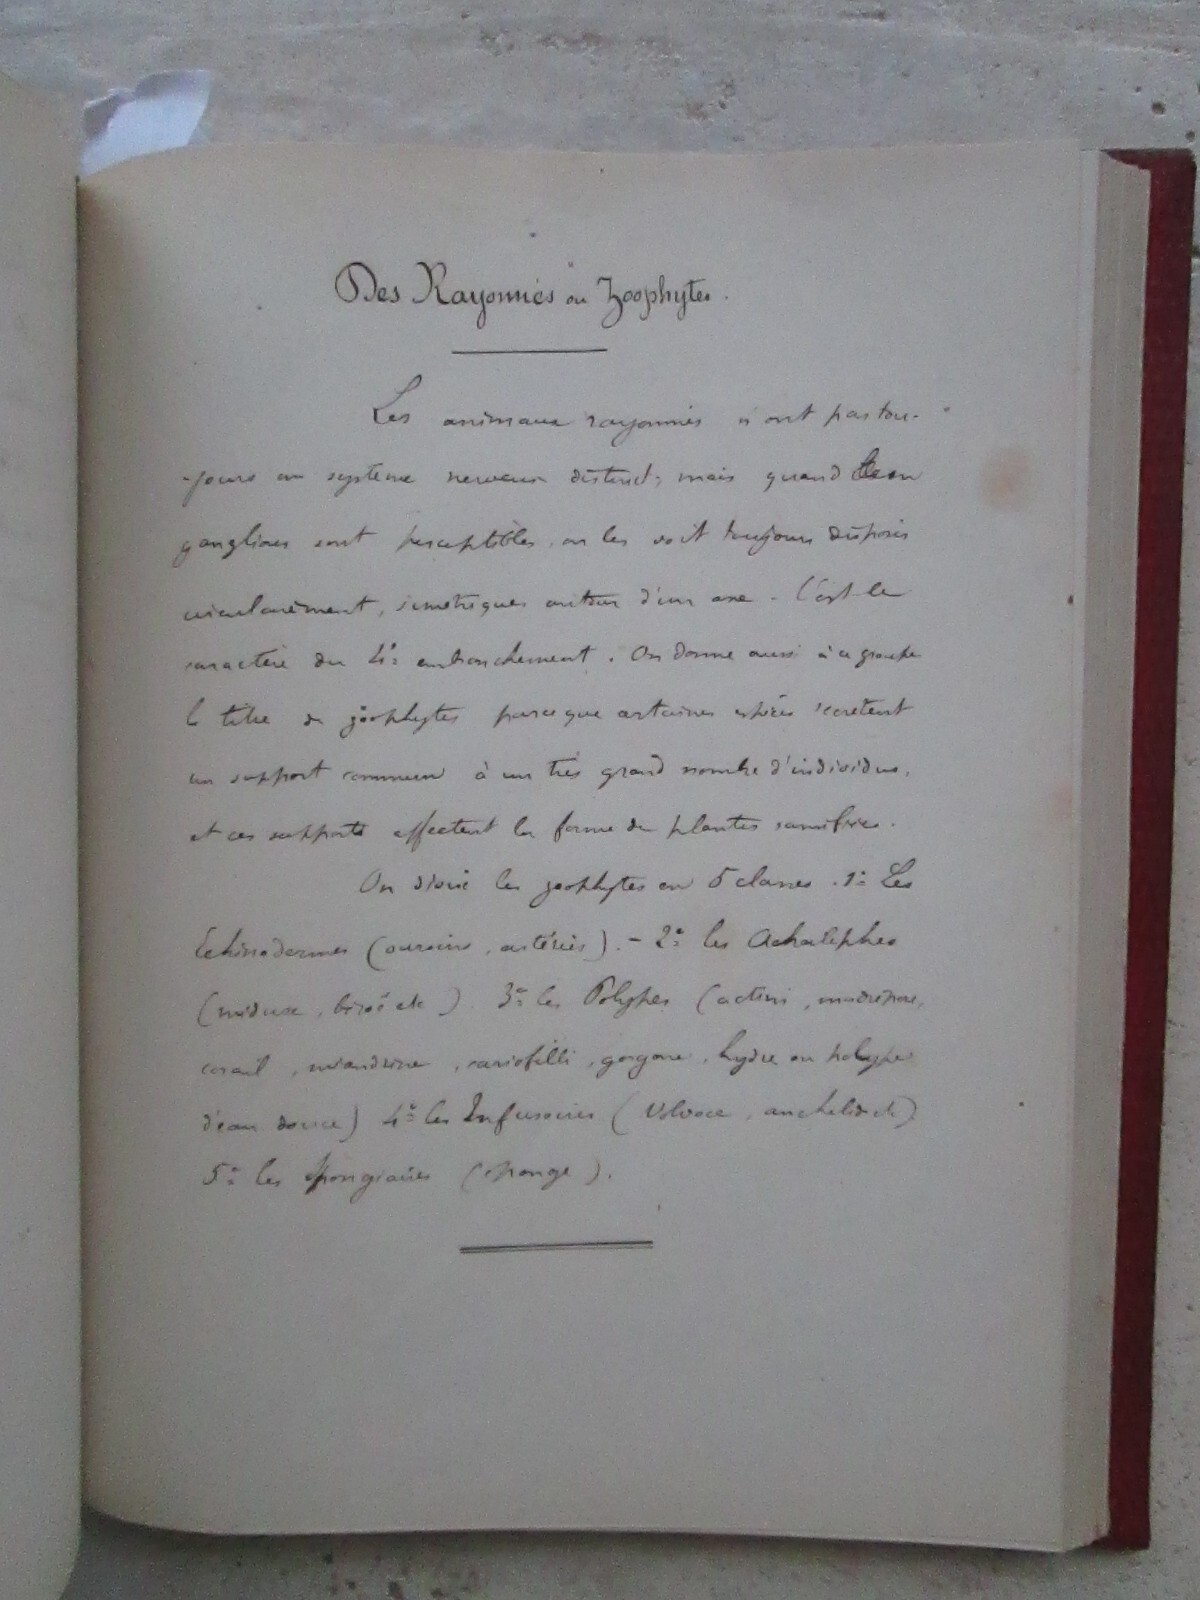 Des Rayonnés ou Zoophytes.
Les animaux rayonnés n'ont pas tou-
-jours un système nerveux distinct, mais quand leur
ganglions sont perceptibles, on les voit toujours disposés
circulairement, simétriques autour d'un axe - C'est le
caractère du 4e embranchement. On donne aussi à ce groupe
le titre de zoophytes parce que certaines espèces secrètent
un support commun à un très grand nombre d'individus,
et ces supports affectent la forme de plantes ramifiées.
On divise les zoophytes en 5 classes. 1º Les
Echinodermes (oursins, astéries). - 2º les Achalèphes
(méduse, béroé etc). 3º les Polypes (actini, madrépore,
corail, méandrine, cariofilli, gorgone, hydre ou polype
d'eau douce) 4º les Infusoires (Volvoce, etc)
5º les Spongiaires (éponge).